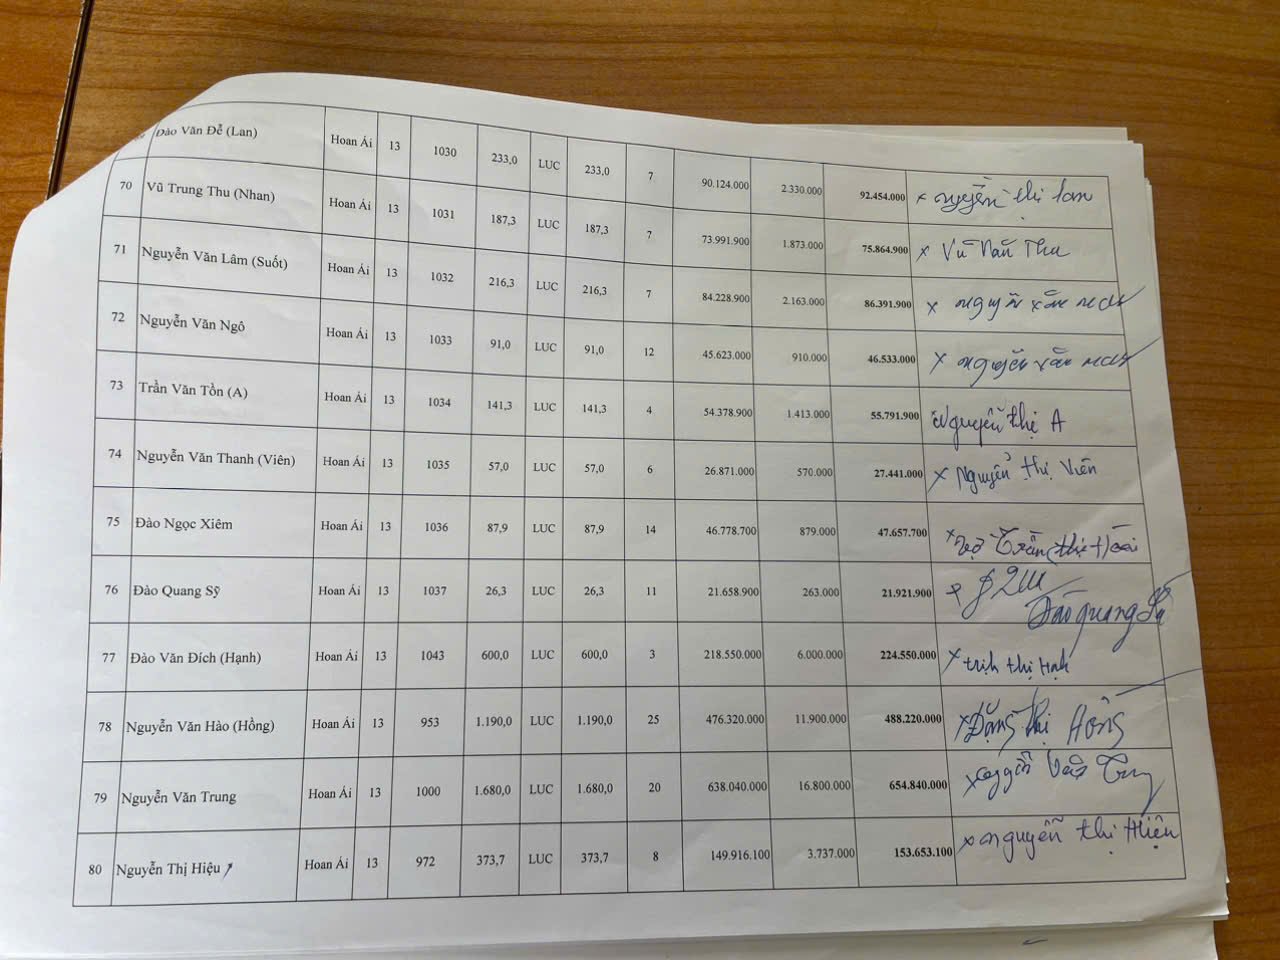 Đào Văn Đễ (Lan) Hoan Ái 13 1030 233,0 LUC 233,0 7 90.124.000 2.330.000 92.454.000 x nguyễn thị lan
70 Vũ Trung Thu (Nhan) Hoan Ái 13 1031 187,3 LUC 187,3 7 73.991.900 1.873.000 75.864.900 x Vũ Văn Thu
71 Nguyễn Văn Lâm (Suốt) Hoan Ái 13 1032 216,3 LUC 216,3 7 84.228.900 2.163.000 86.391.900 x nguyễn văn
72 Nguyễn Văn Ngô Hoan Ái 13 1033 91,0 LUC 91,0 12 45.623.000 910.000 46.533.000 x nguyễn văn
73 Trần Văn Tồn (A) Hoan Ái 13 1034 141,3 LUC 141,3 4 54.378.900 1.413.000 55.791.900 x Nguyễn thị A
74 Nguyễn Văn Thanh (Viên) Hoan Ái 13 1035 57,0 LUC 57,0 6 26.871.000 570.000 27.441.000 x Nguyễn thị Viên
75 Đào Ngọc Xiêm Hoan Ái 13 1036 87,9 LUC 87,9 14 46.778.700 879.000 47.657.700 x vợ Trần thị
76 Đào Quang Sỹ Hoan Ái 13 1037 26,3 LUC 26,3 11 21.658.900 263.000 21.921.900 x
Đào quang Sỹ
77 Đào Văn Đích (Hạnh) Hoan Ái 13 1043 600,0 LUC 600,0 3 218.550.000 6.000.000 224.550.000 x trịnh thị Hạnh
78 Nguyễn Văn Hào (Hồng) Hoan Ái 13 953 1.190,0 LUC 1.190,0 25 476.320.000 11.900.000 488.220.000 x Đặng thị Hồng
79 Nguyễn Văn Trung Hoan Ái 13 1000 1.680,0 LUC 1.680,0 20 638.040.000 16.800.000 654.840.000 x nguyễn Văn Trung
80 Nguyễn Thị Hiệu Hoan Ái 13 972 373,7 LUC 373,7 8 149.916.100 3.737.000 153.653.100 x nguyễn thị Hiệu